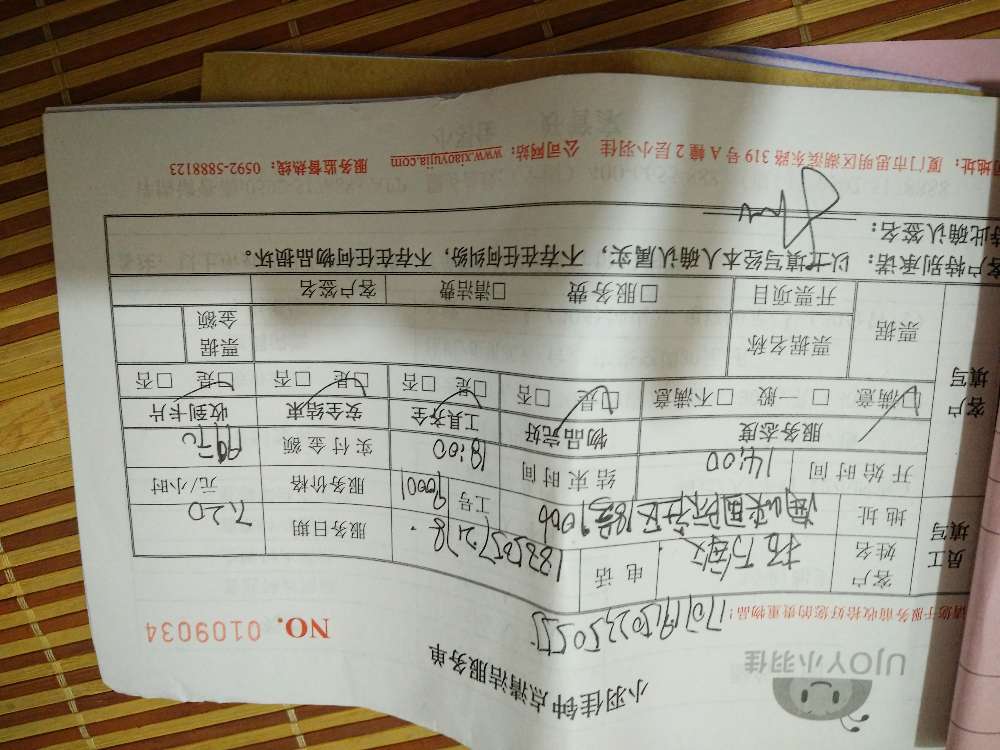 小羽佳钟点清洁服务单
UJOY小羽佳
NO. 0109034
请您于服务前收拾好您的贵重物品!
员工填写
客户姓名
电话
服务日期
7.20
地址
工号
90001
服务价格
元/小时
开始时间
14:00
结束时间
18:00
实付金额
客户填写
服务态度
物品完好
工具齐全
安全结束
收到卡片
□满意 □一般 □不满意
□是 □否
□是 □否
□是 □否
□是 □否
票据
票据名称
票据金额
开票项目
□服务费 □清洁费
客户签名
客户特别承诺: 以上填写经本人确认属实, 不存在任何纠纷, 不存在任何物品损坏。
特此确认签名:
地址: 厦门市思明区湖滨东路 319 号 A 幢 2 层小羽佳 公司网站: www.xiaoyujia.com 服务监督热线: 0592-5888123